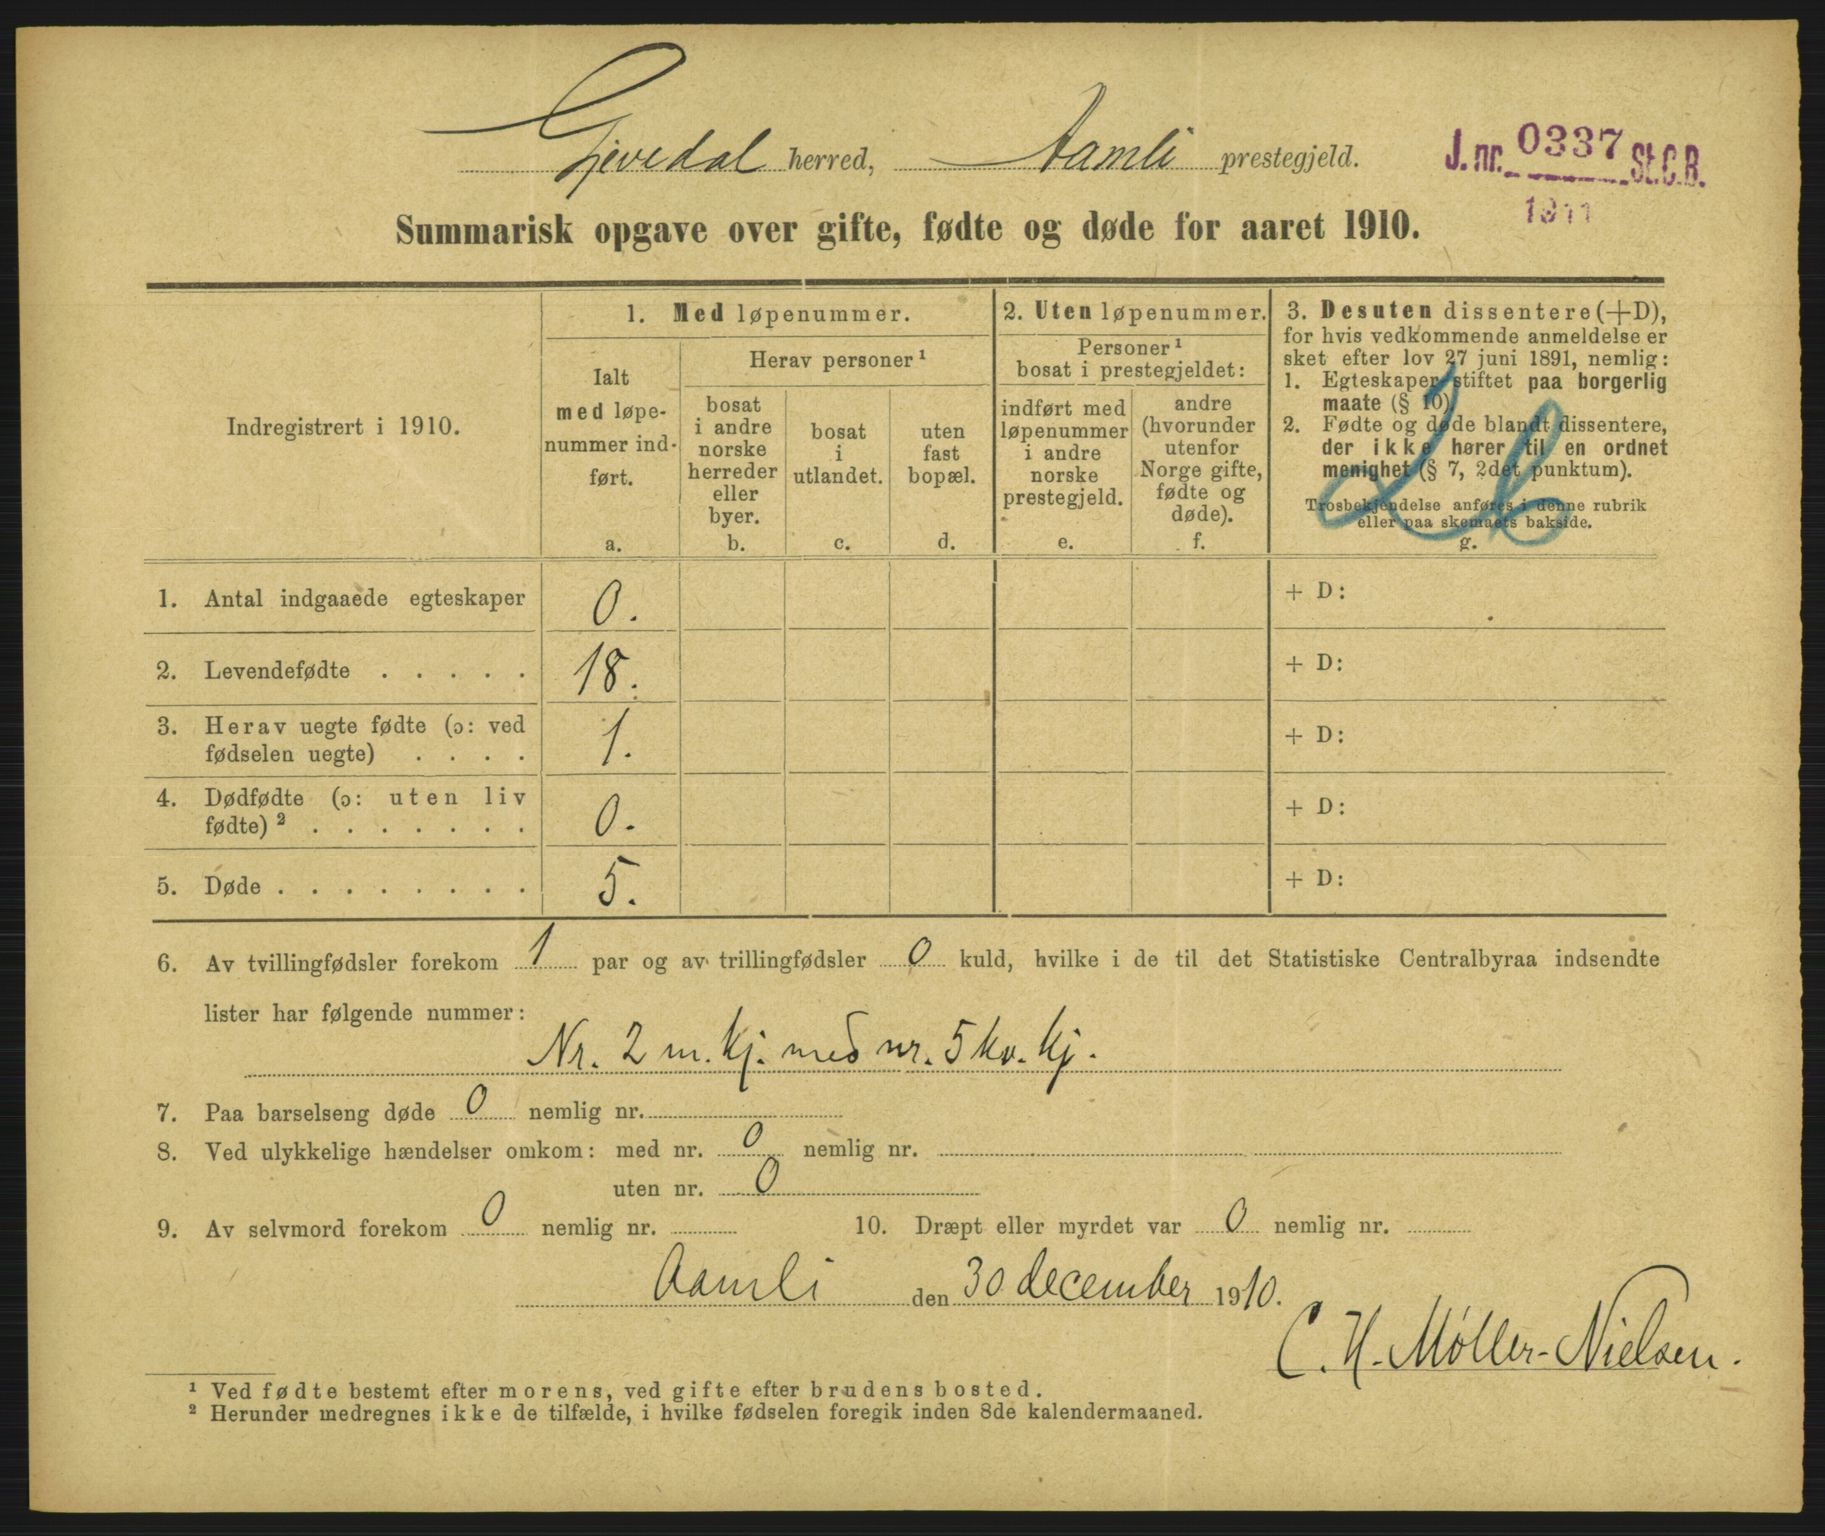 Gjevedal herred, Aamli prestegjeld.
J. nr. 0337 St. C. B.
1911
Summarisk opgave over gifte, fødte og døde for aaret 1910.
Indregistrert i 1910.
1. Med løpenummer.
Ialt
med løpe-
nummer ind-
ført.
a.
Herav personer ¹
bosat
i andre
norske
herreder
eller
byer.
b.
bosat
i
utlandet.
c.
uten
fast
bopæl.
d.
2. Uten løpenummer.
Personer ¹
bosat i prestegjeldet:
indført med
løpenummer
i andre
norske
prestegjeld.
e.
andre
(hvorunder
utenfor
Norge gifte,
fødte og
døde).
f.
3. Desuten dissentere (+D),
for hvis vedkommende anmeldelse er
sket efter lov 27 juni 1891, nemlig:
1. Egteskaper stiftet paa borgerlig
maate (§ 10).
2. Fødte og døde blandt dissentere,
der ikke hører til en ordnet
menighet (§ 7, 2det punktum).
Trosbekjendelse anføres i denne rubrik
eller paa skemaets bakside.
g.
1. Antal indgaaede egteskaper 0. + D:
2. Levendefødte . . . . . 18. + D:
3. Herav uegte fødte (ɔ: ved
fødselen uegte) . . . . 1. + D:
4. Dødfødte (ɔ: uten liv
fødte) ² . . . . . . . 0. + D:
5. Døde . . . . . . . . 5. + D:
6. Av tvillingfødsler forekom 1 par og av trillingfødsler 0 kuld, hvilke i de til det Statistiske Centralbyraa indsendte
lister har følgende nummer:
Nr. 2 m. kj. med nr. 5 kv. kj.
7. Paa barselseng døde 0 nemlig nr.
8. Ved ulykkelige hændelser omkom: med nr. 0 nemlig nr.
uten nr. 0
9. Av selvmord forekom 0 nemlig nr. 10. Dræpt eller myrdet var 0 nemlig nr.
Aamli den 30 december 1910.
C. H. Møller-Nielsen.
¹ Ved fødte bestemt efter morens, ved gifte efter brudens bosted.
² Herunder medregnes ikke de tilfælde, i hvilke fødselen foregik inden 8de kalendermaaned.